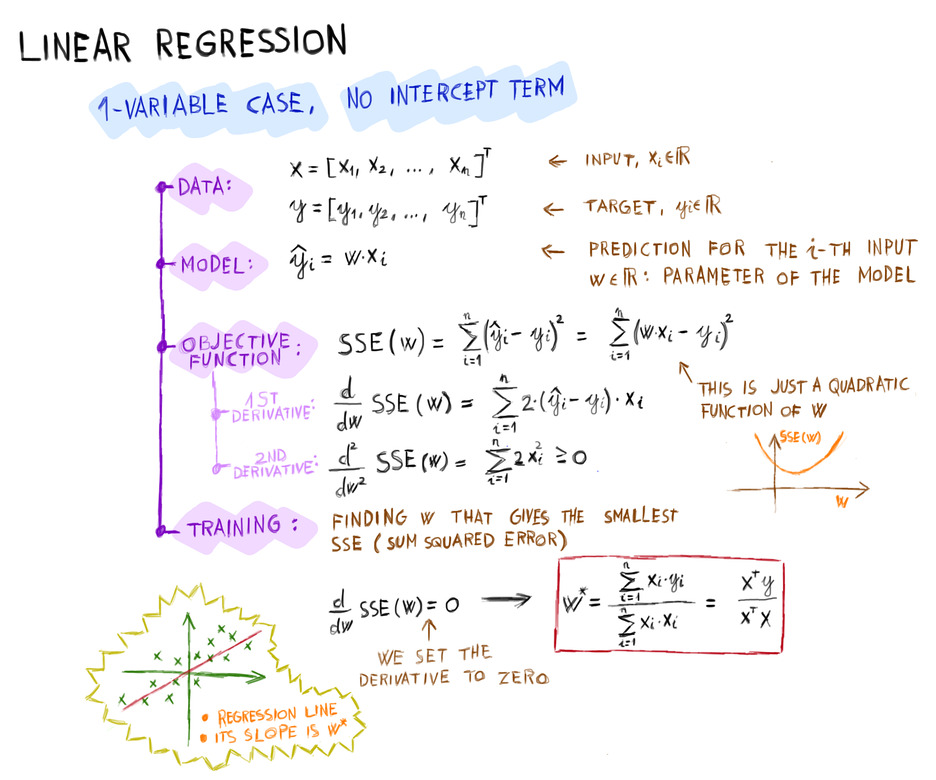 LINEAR REGRESSION
1-VARIABLE CASE, NO INTERCEPT TERM
DATA: x = [x₁, x₂, ..., xₙ]ᵀ ← INPUT, xᵢ∈ℝ
y = [y₁, y₂, ..., yₙ]ᵀ ← TARGET, yᵢ∈ℝ
MODEL: ŷᵢ = w·xᵢ ← PREDICTION FOR THE i-TH INPUT
w∈ℝ: PARAMETER OF THE MODEL
OBJECTIVE FUNCTION: SSE(w) = ∑ᵢ₌₁ⁿ (ŷᵢ - yᵢ)² = ∑ᵢ₌₁ⁿ (w·xᵢ - yᵢ)²
THIS IS JUST A QUADRATIC
FUNCTION OF W
1ST DERIVATIVE: d/dw SSE(w) = ∑ᵢ₌₁ⁿ 2·(ŷᵢ - yᵢ)·xᵢ
SSE(w)
w
2ND DERIVATIVE: d²/dw² SSE(w) = ∑ᵢ₌₁ⁿ 2xᵢ² ≥ 0
TRAINING: FINDING W THAT GIVES THE SMALLEST
SSE (SUM SQUARED ERROR)
d/dw SSE(w) = 0 → w* = ∑ᵢ₌₁ⁿ xᵢ·yᵢ / ∑ᵢ₌₁ⁿ xᵢ·xᵢ = xᵀy / xᵀx
WE SET THE
DERIVATIVE TO ZERO
• REGRESSION LINE
• ITS SLOPE IS W*